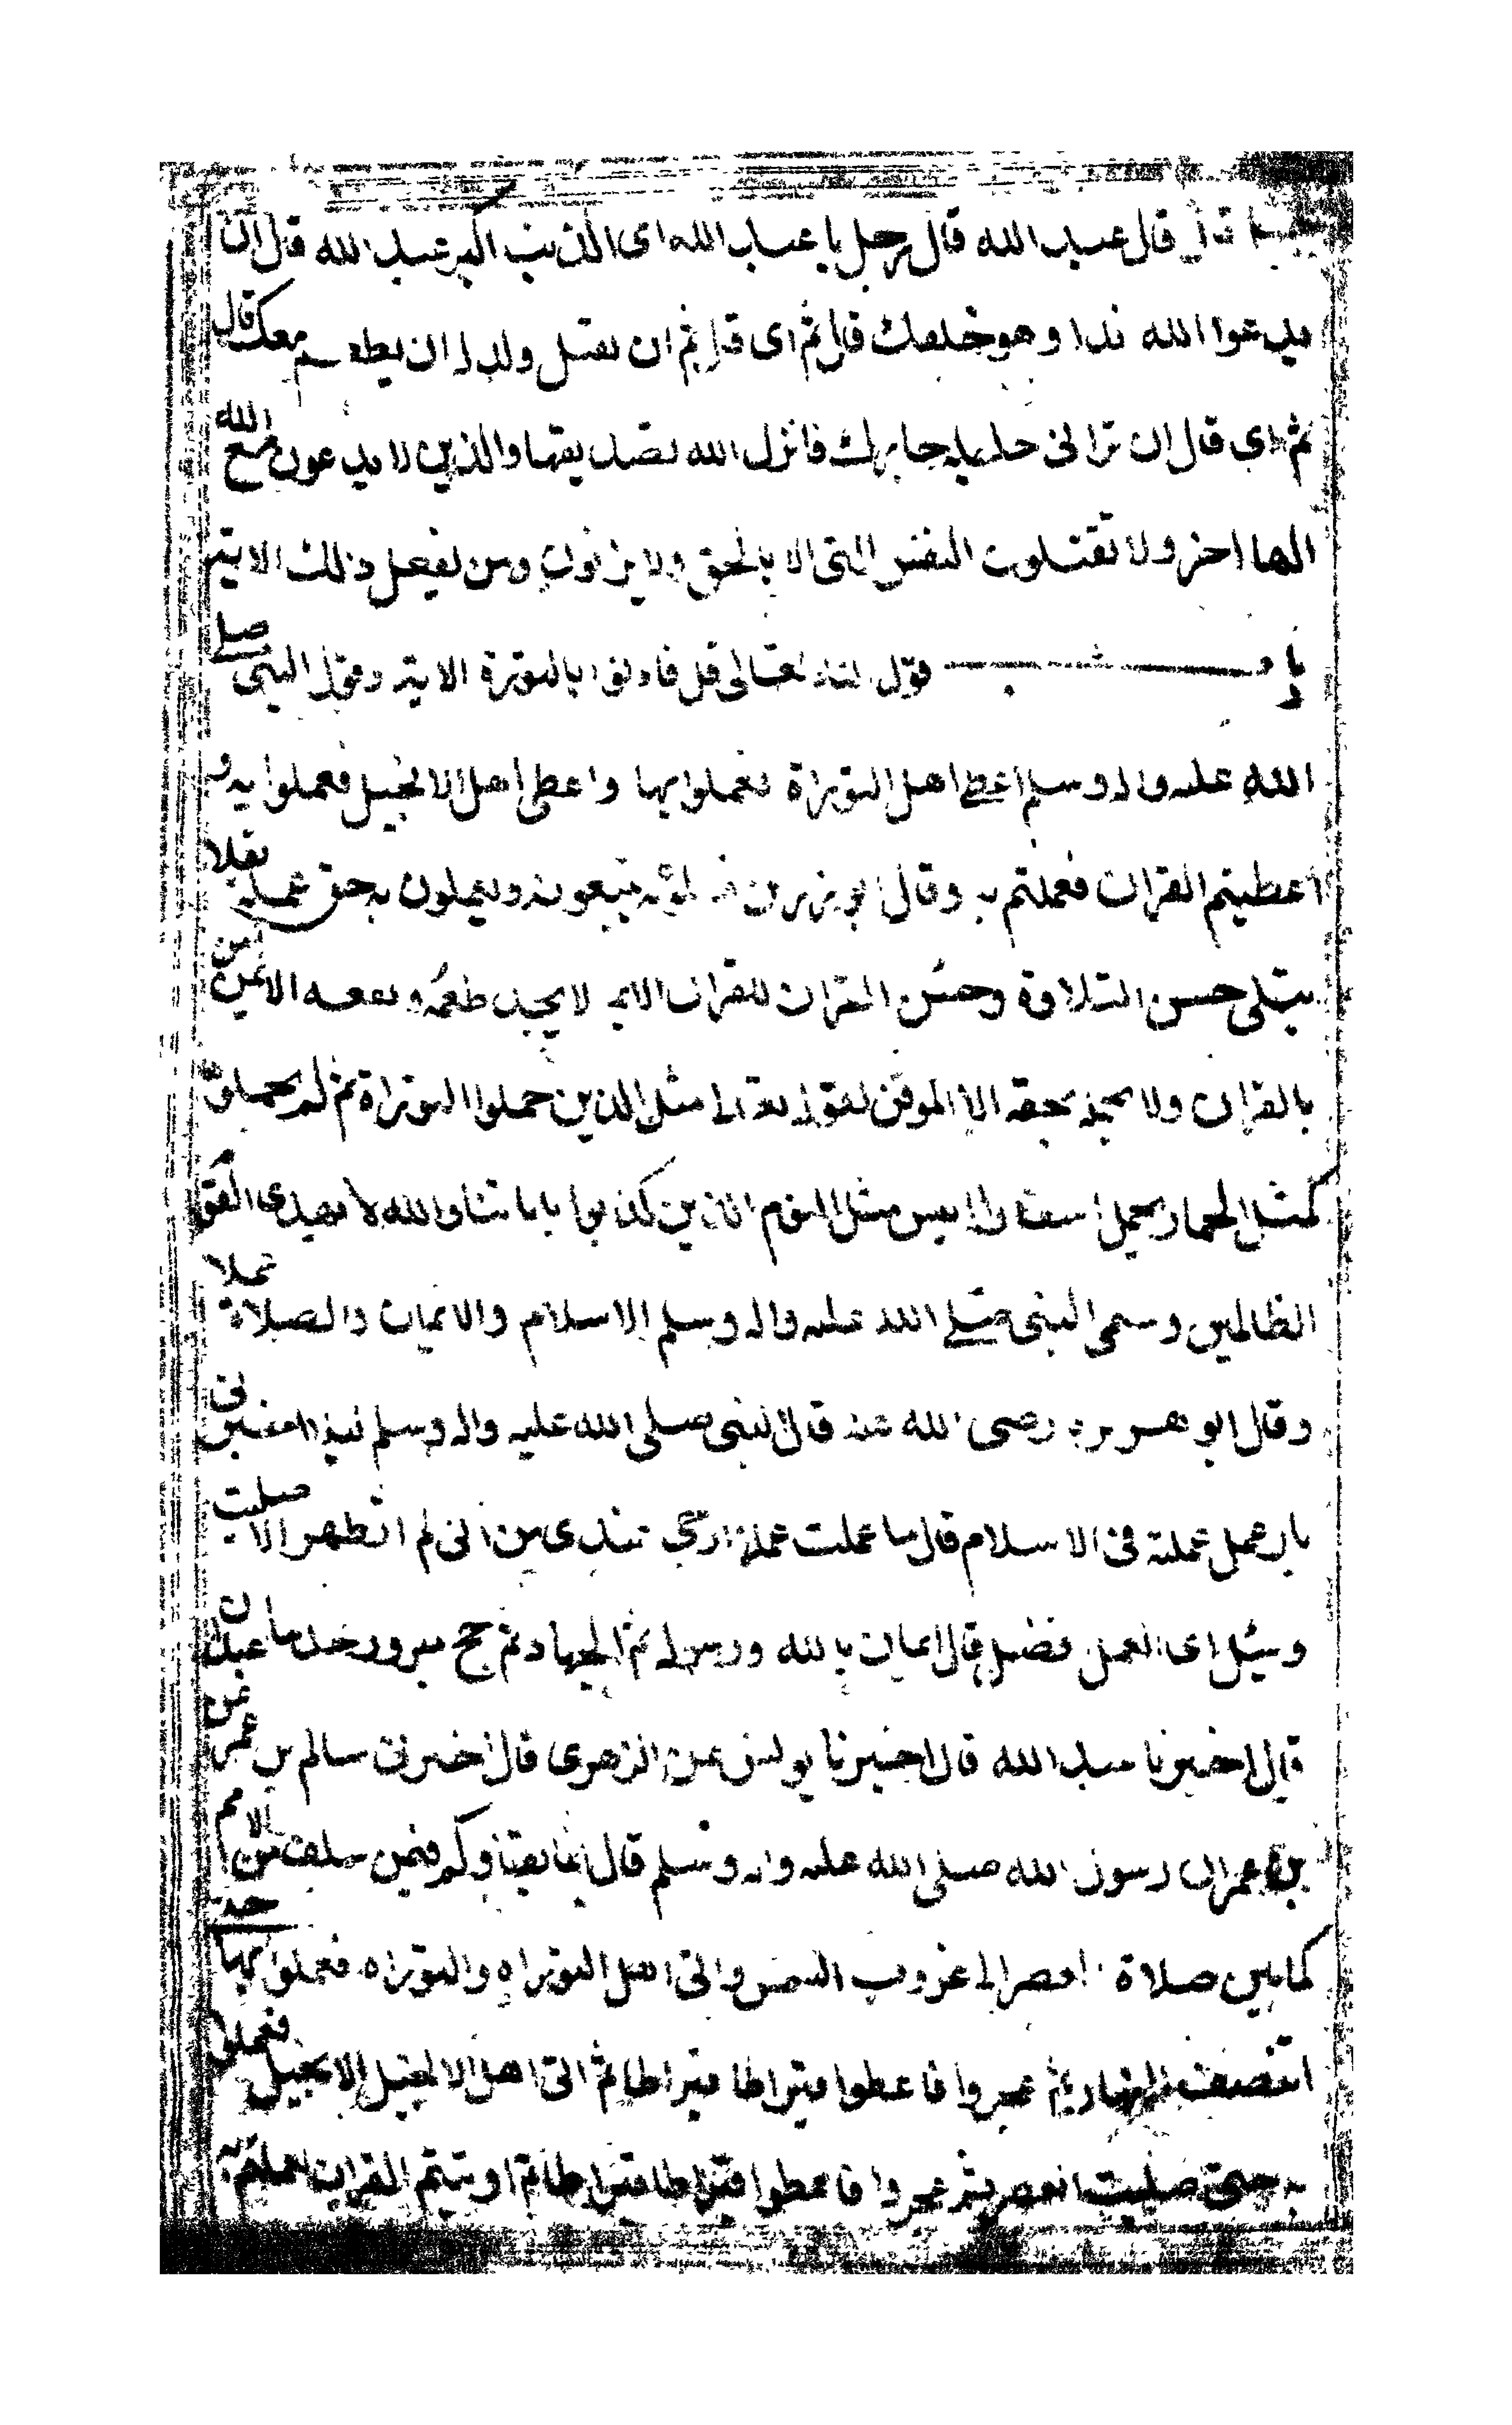 قال عبد الله قال رجل يا عبد الله اى الذنب اكبر عبد الله قال ان
يدعوا الله ندا وهو خلقك قال ثم اى قال ثم ان تقتل ولدك ان يطعم معك قال
ثم اى قال ان تزانى حليلة جارك فانزل الله تصديقها والذين لا يدعون مع الله
الها اخر ولا تقتلون النفس التى الا بالحق ولا يزنون ومن يفعل ذلك الاية
باب قول الله تعالى قل فاتوا بالتورة الاية وقول النبى صلى
الله عليه واله وسلم اعطى اهل التوراة فعملوا بها واعطى اهل الانجيل فعملوا به و
اعطيتم القران فعملتم به وقال ابو رزين يتبعونه ويعملون به حق عمله يقال
يتلى حسن التلاوة وحسن القران للقران لا يجد طعمه ونفعه الا من امن
بالقران ولا يحمله بحقه الا الموقن لقوله تعالى مثل الذين حملوا التوراة ثم لم يحملوها
كمثل الحمار يحمل اسفارا بيس مثل القوم الذين كذبوا باياتنا والله لا يهدى القوم
الظالمين وسمى النبى صلى الله عليه واله وسلم الاسلام والايمان والصلاة عملا
وقال ابو هريرة رضى الله عنه قال النبى صلى الله عليه واله وسلم لبلال اخبرنى
بارجى عمل عملته فى الاسلام قال ما عملت عملا ارجى عندى من انى لم اتطهر الا صليت
وسئل اى العمل افضل قال ايمان بالله ورسوله ثم الجهاد ثم حج مبرور حدثنا عبدان
قال اخبرنا عبد الله قال اخبرنا يونس عن الزهرى قال اخبرنى سالم بن عمر عن
بن عمر ان رسول الله صلى الله عليه واله وسلم قال انما بقاؤكم فيمن سلف من الامم
كما بين صلاة العصر الى غروب الشمس واتى اهل التوراه والتوراه فعملوا بها حتى
انتصف النهار ثم عجزوا فاعطوا قيراطا قيراطا ثم اتى اهل الانجيل الانجيل فعملوا
به حتى صليت العصر ثم عجزوا فاعطوا قيراطا قيراطا ثم اوتيتم القران فعملتم به